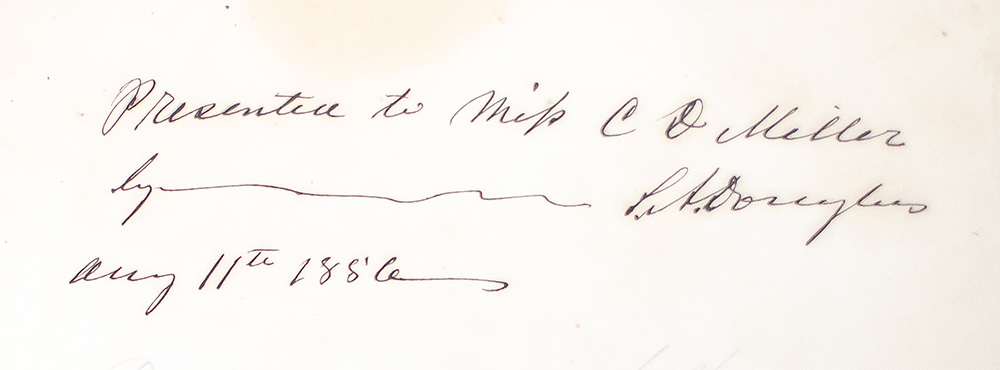 Presented to Miss C D Miller
by S. A. Douglas
Aug 11th 1856